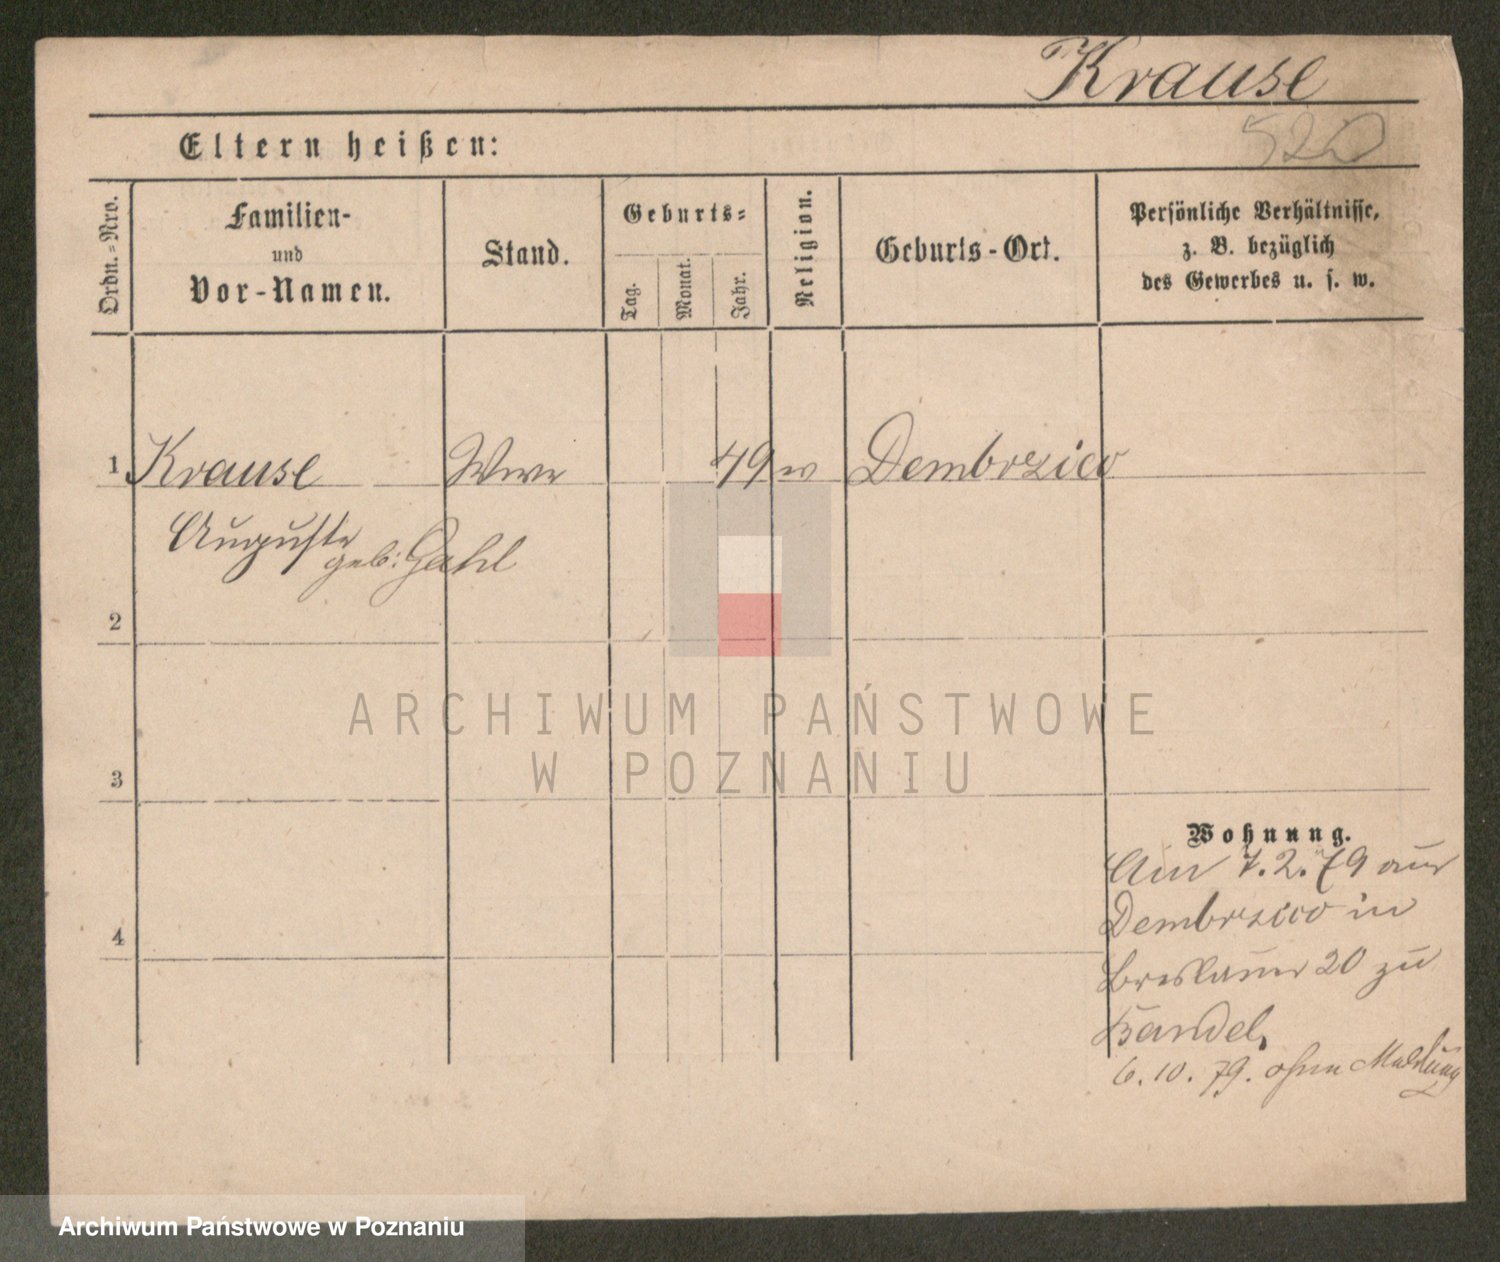 Krause
520
Eltern heißen:
Ordn.=Nro.
Familien-
und
Vor-Namen.
Stand.
Geburts=
Tag.
Monat.
Jahr.
Religion.
Geburts-Ort.
Persönliche Verhältnisse,
z. B. bezüglich
des Gewerbes u. s. w.
1 Krause Wwe 49 ev Dembrzico
Auguste
geb: Gahl
2
ARCHIWUM PAŃSTWOWE
W POZNANIU
3
Wohnung.
Am 7.2.79 aus
Dembrzico in
Breslauer 20 zu
Bandel.
4
6.10.79. ohne Meldung
Archiwum Państwowe w Poznaniu